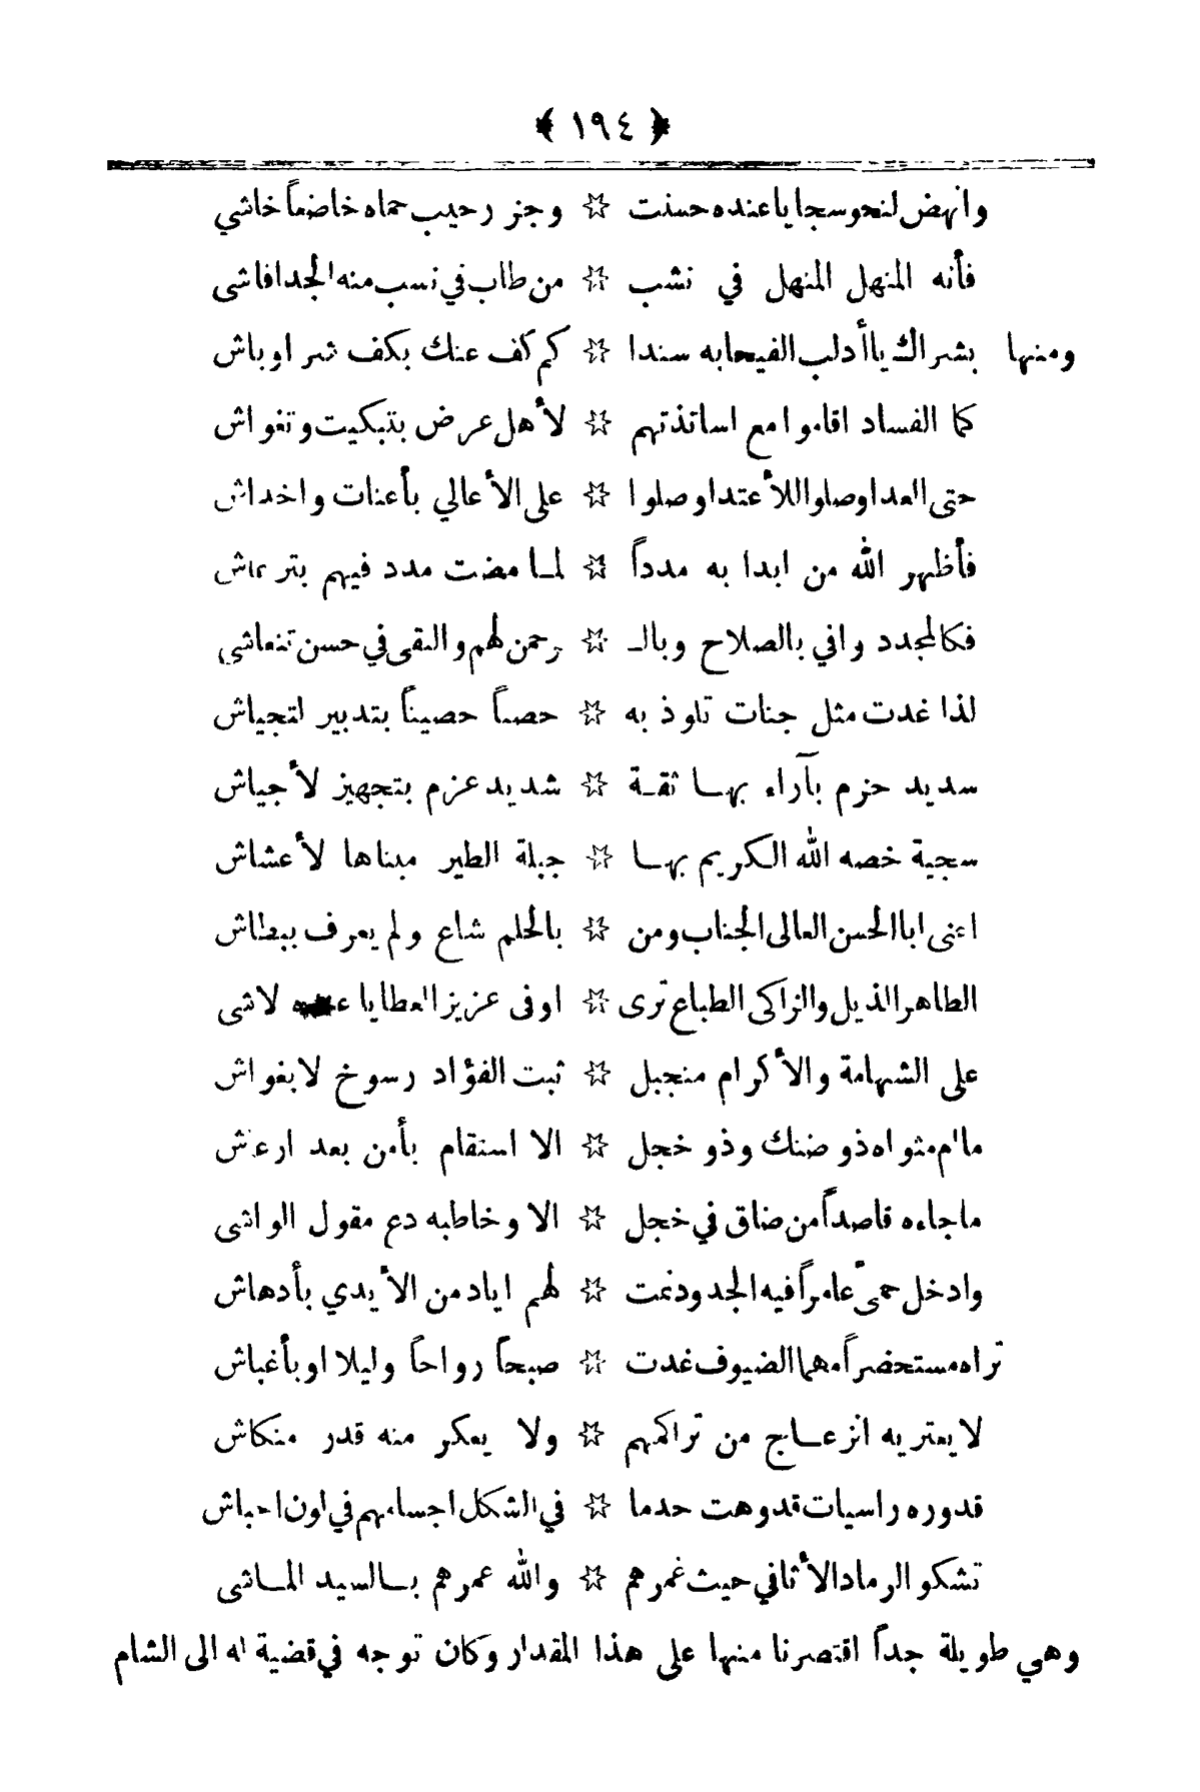 ﴿ ١٩٤ ﴾
وانهض لنحو سجايا عنده حسنت ☆ وجز رحيب حماه خاضعاً خاشي
فأنه المنهل المنهل في نشب ☆ من طاب في نسب منه الجدا فاشى
ومنها بشراك يا أدلب الفيحا به سندا ☆ كم كف عنك بكف شر اوباش
كما الفساد اقاموا مع اساتذتهم ☆ لأهل عرض بتبكيت وتغواش
حتى العدا وصلوا اللأعتدا وصلوا ☆ على الأعالي بأعنات واخداش
فأظهر الله من ابدا به مدداً ☆ لما مضت مدد فيهم بترعاش
فكالمجدد وافي بالصلاح وبالـ ☆ رحمن لهم والتقى في حسن تنعاشي
لذا غدت مثل جنات تلوذ به ☆ حصناً حصيناً بتدبير لتجياش
سديد حزم بآراء بها ثقة ☆ شديد عزم بتجهيز لأجياش
سجية خصه الله الكريم بها ☆ جبلة الطير مبناها لأعشاش
اعنى ابا الحسن العالى الجناب ومن ☆ بالحلم شاع ولم يعرف ببطاش
الطاهر الذيل والزاكى الطباع ترى ☆ اوفى عزيز العطايا لاشى
على الشهامة والأكرام منجبل ☆ ثبت الفؤاد رسوخ لا بغواش
ما ام مثواه ذو ضنك وذو خجل ☆ الا استقام بأمن بعد ارعاش
ما جاءه قاصداً من ضاق في خجل ☆ الا وخاطبه دع مقول الواشى
وادخل حمىً عامراً فيه الجدود نمت ☆ لهم اياد من الأيدي بأدهاش
تراه مستحضراً مهما الضيوف غدت ☆ صبحاً رواحاً وليلا او بأغباش
لا يعتريه انزعاج من تراكمهم ☆ ولا يعكر منه قدر منكاش
قدوره راسيات قد وهت حدما ☆ في الشكل اجساءهم في لون احباش
تشكو الرماد الأثافي حيث غمرهم ☆ والله عمرهم بالسيد الماشى
وهي طويلة جداً اقتصرنا منها على هذا المقدار وكان توجه في قضية له الى الشام